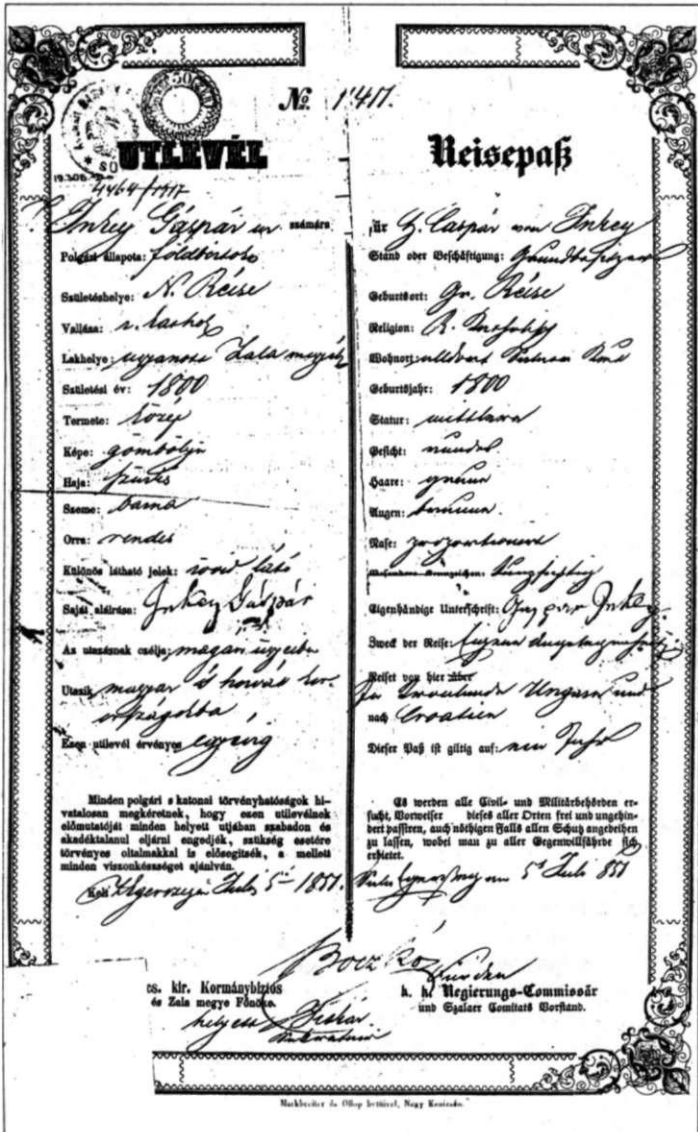 No 1'417.
UTLEVÉL
4464/1917
Inkey Gáspár úr számára
Polgári állapota: földbirtokos
Születéshelye: N. Récse
Vallása: r. kathol
Lakhelye: ugyanott Zala megyéb
Születési év: 1800
Termete: közép
Képe: gömbölyü
Haja: szürke
Szeme: barna
Orra: rendes
Különös látható jelek: rövid látó
Saját aláirása: Inkey Gáspár
Az utazásnak czélja: magán ügyeibe
Utazik magyar és horvát
országokba
Ezen utilevél érvényes egy évig
Minden polgári s katonai törvényhatóságok hi-
vatalosan megkéretnek, hogy ezen utilevélnek
előmutatóját minden helyett utjában szabadon és
akadéktalanul eljárni engedjék, szükség esetére
törvényes oltalmakkal is elősegitsék, a mellett
minden viszonkészséget ajánlván.
Kelt Egerszegen Juli 5én 1851.
cs. kir. Kormánybiztos
és Zala megye Főnöke.
helyett
Reisepaß
für H. Caspár von Inkey
Stand oder Beschäftigung: Grundbesitzer
Geburtsort: Gr. Récse
Religion: R. Katholisch
Wohnort:
Geburtsjahr: 1800
Statur: mittlere
Gesicht: rundes
Haare: graue
Augen: braune
Nase: proportionert
Besondere Kennzeichen: kurzsichtig
Eigenhändige Unterschrift: Inkey
Zweck der Reise: eigene Angelegenheit
Reiset von hier über
Ungarn und
nach Croatien
Dieser Paß ist giltig auf: ein Jahr
Es werden alle Civil- und Militärbehörden er-
sucht, Vorweiser dieses aller Orten frei und ungehin-
dert passiren, auch nöthigen Falls allen Schutz angedeihen
zu lassen, wobei man zu aller Gegenwillfährde sich
erbietet.
am 5t Juli 851
Boczkó
k. k. Regierungs-Commissär
und Szalaer Comitats Vorstand.
Markbreiter és Ollop betüivel, Nagy Kanizsán.